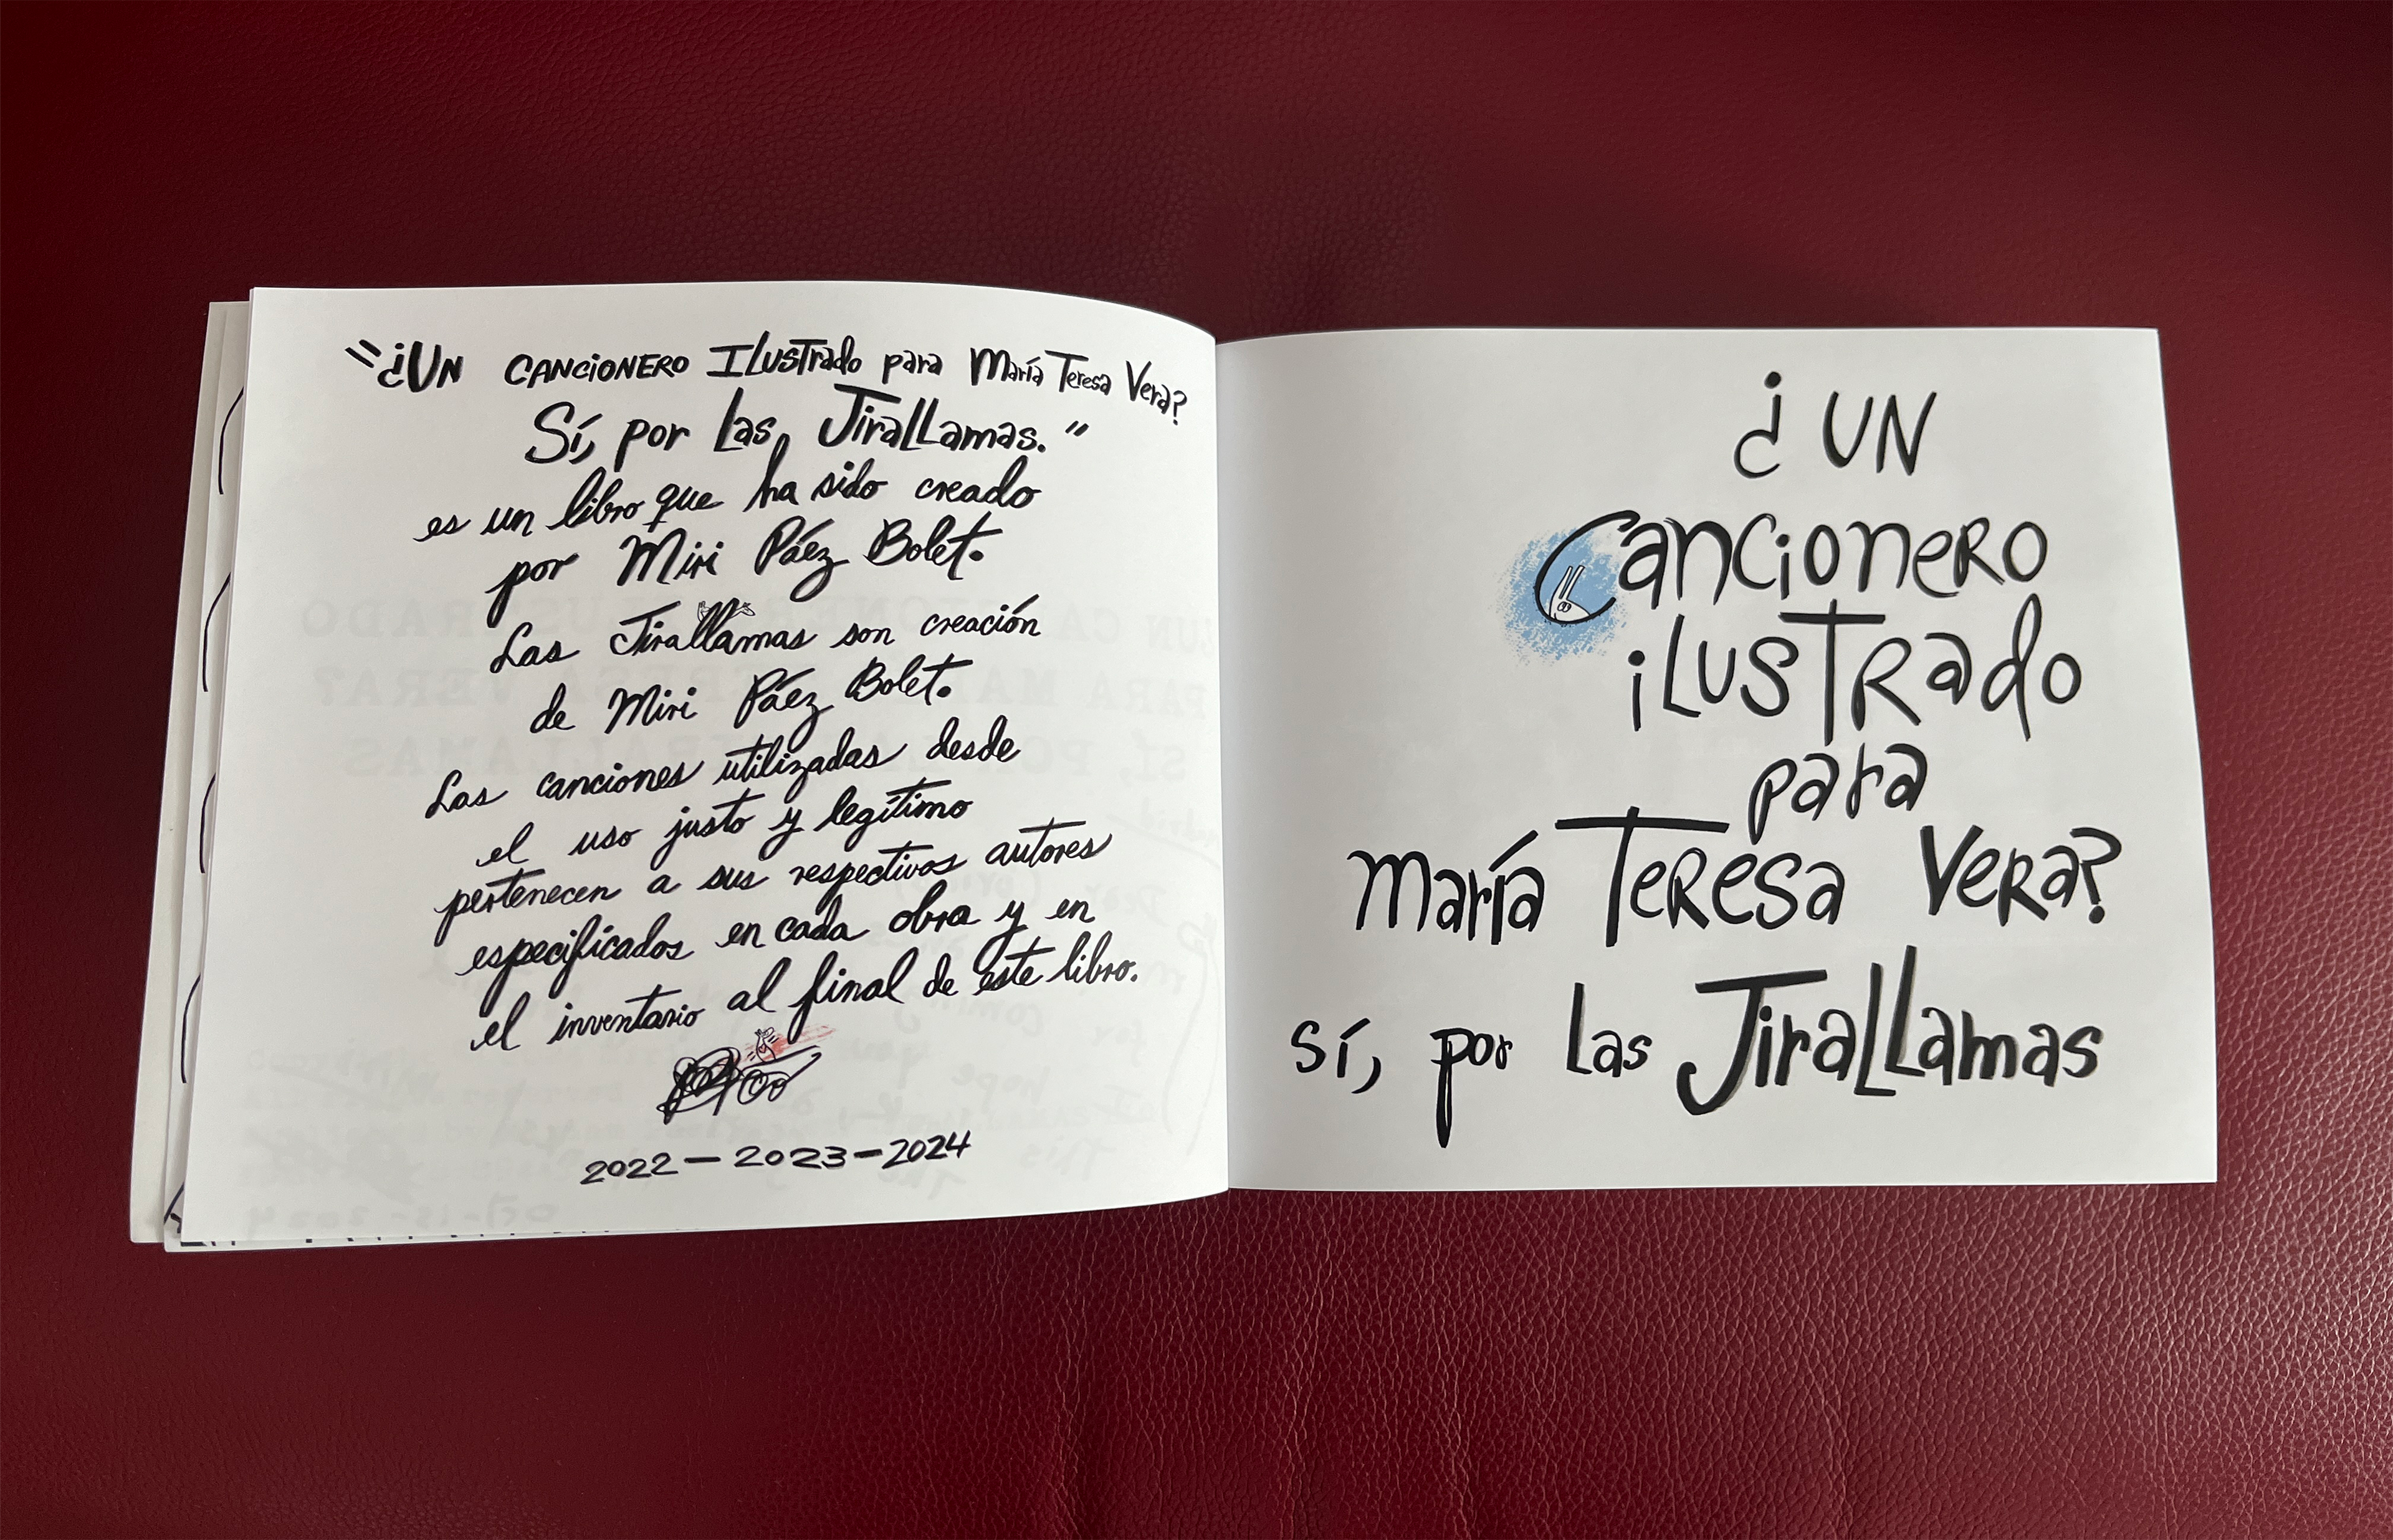 "¿UN CANCIONERO ILUSTrado para María Teresa Vera?
Sí, por Las JiraLLamas."
es un libro que ha sido creado
por Miri Páez Bolet.
Las Jirallamas son creación
de Miri Páez Bolet.
Las canciones utilizadas desde
el uso justo y legítimo
pertenecen a sus respectivos autores
especificados en cada obra y en
el inventario al final de este libro.
2022-2023-2024
¿UN
CancioneRO
iLUSTRado
para
María TeResa VeRa?
sí, por Las JiraLLamas